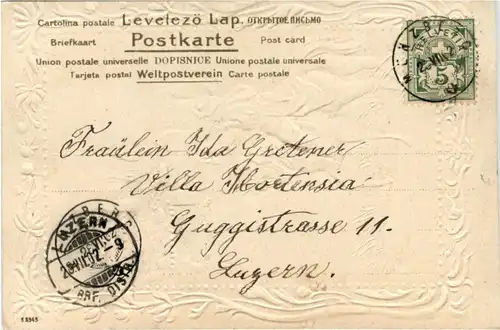 Cartolina postale Levelező Lap. ОТКРЫТОЕ ПИСЬМО
Briefkaart Postkarte Post card
Union postale universelle DOPISNICE Unione postale universale
Tarjeta postal Weltpostverein Carte postale
HELVETIA
5
Fräulein Ida Gretener
Villa Hortensia
Guggistrasse 11.
Luzern.
LUZERN
BRF. DISTR.